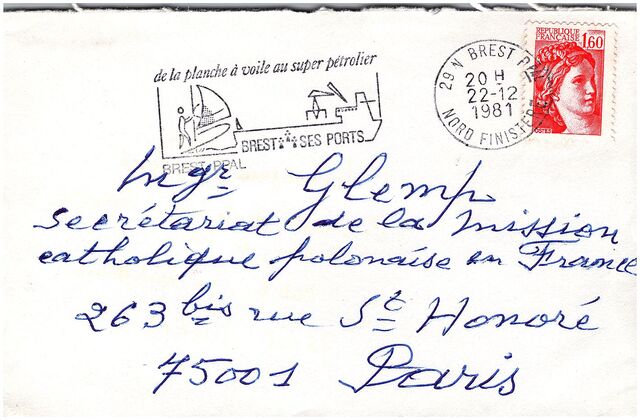 de la planche à voile au super pétrolier
BREST SES PORTS
BREST PPAL
29 N BREST PPAL
20 H
22-12
1981
NORD FINISTERE
REPUBLIQUE
FRANÇAISE 1,60
Mgr Glemp
secrétariat de la mission
catholique polonaise en France
263 bis rue St Honoré
75001 Paris